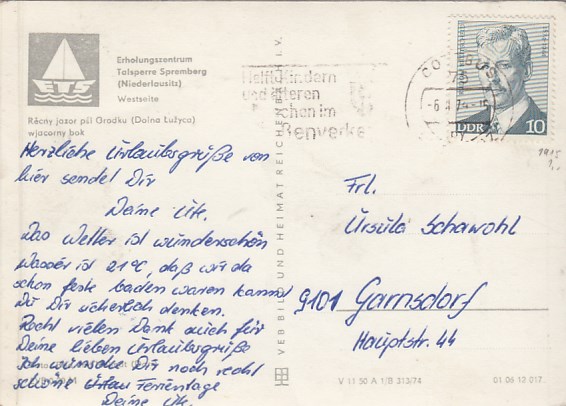 ETS
Erholungszentrum
Talsperre Spremberg
(Niederlausitz)
Westseite
Rěčny jazor pśi Grodku (Dolna Łužyca)
wjacorny bok
Herzliche Urlaubsgrüße von
hier sendet Dir
Deine Ute.
Das Wetter ist wunderschön
Wasser ist 21°C, daß wir da
schon feste baden waren kannst
Du Dir sicherlich denken.
Recht vielen Dank auch für
Deine lieben Urlaubsgrüße
Ich wünsche Dir noch recht
schöne Ferientage
Deine Ute.
VEB BILD UND HEIMAT REICHENBACH i. V.
Helft Kindern
und älteren
im
DDR 10
Frl.
Ursula Schawohl
9101 Garnsdorf
Hauptstr. 44
V 11 50 A 1/B 313/74
01 06 13 017